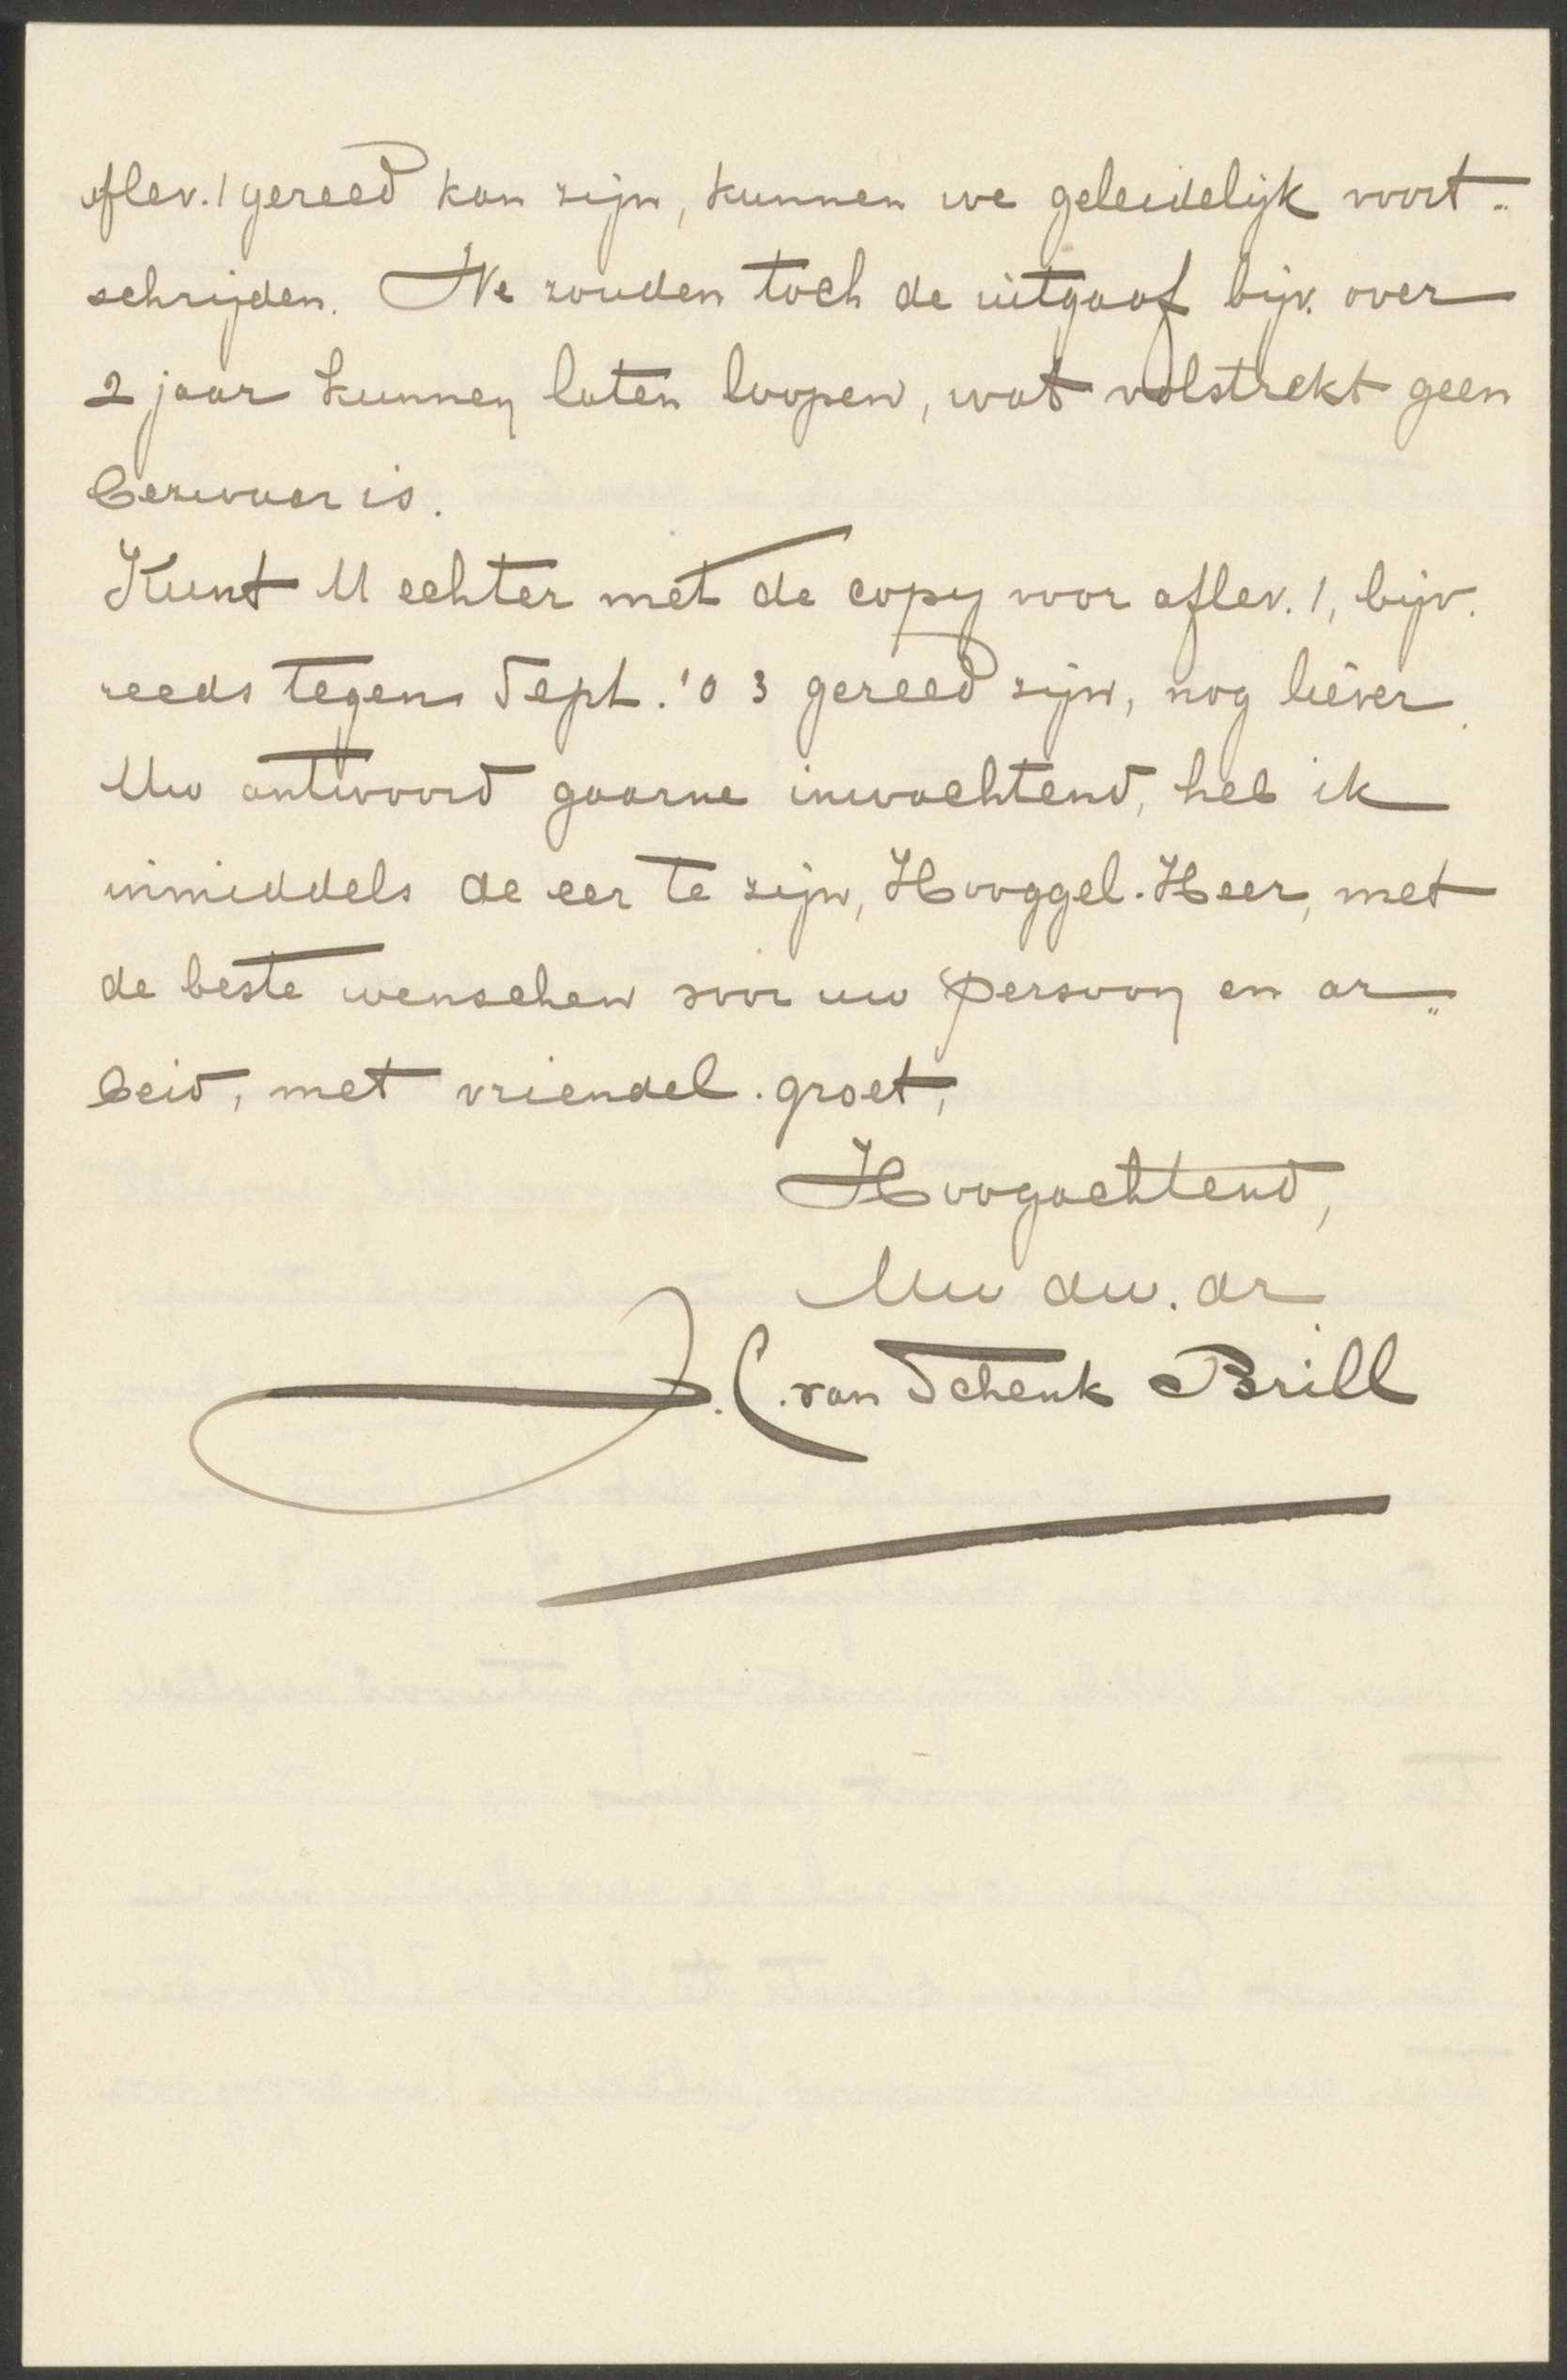 aflev. 1 gereed kan zijn, kunnen we geleidelijk voort„
schrijden. We zouden toch de uitgaaf bijv. over
2 jaar kunnen laten loopen, wat volstrekt geen
bezwaar is.
Kunt U echter met de copy voor aflev. 1, bijv.
reeds tegen Sept. '03 gereed zijn, nog liever.
Uw antwoord gaarne inwachtend, heb ik
inmiddels de eer te zijn, Hooggel. Heer, met
de beste wenschen voor uw persoon en ar„
beid, met vriendel. groet,
Hoogachtend,
Uw dw. dr
J. C. van Schenk Brill